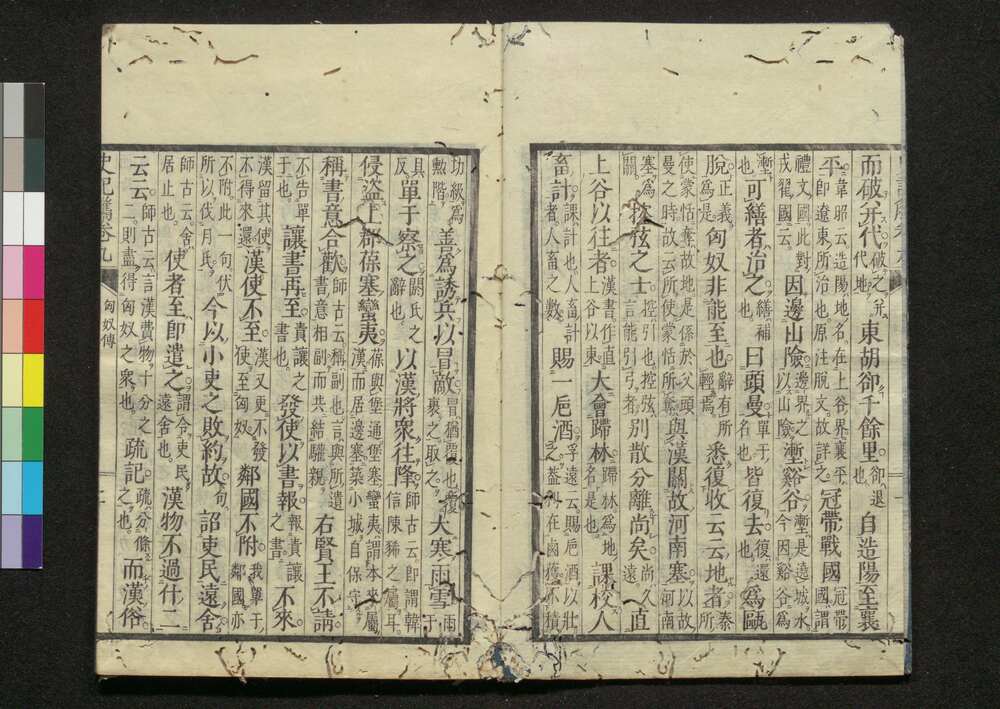 而破并代破之并代地東胡卻千餘里卻退也自造陽至襄
平韋昭云造陽地名在上谷界襄平即遼東所治也原注脫文故詳之冠帶戰國冠帶國謂
禮文國此對戎翟國云因邊山險邊界之以山險塹谿谷塹是遶城水今因谿谷為
塹也可繕者治之繕補也曰頭曼單于名也皆復去復還也為甌
脫正義為是匈奴非能至也辭有所輕焉悉復收云云地者秦所
使蒙恬奪故地是係於父頭曼之時故云所使蒙恬所與漢關故河南塞以故河南
塞為關控弦之士控引也控弦言能引弓者別散分離尚矣尚久遠直
上谷以往者漢書作直上谷以東大會蹛林蹛林為地名是也課校人
畜計課計也人畜計者人畜之數賜一巵酒孚遠云賜巵酒以壯之蓋利在鹵獲不積
功級為勲階善為誘兵以冒敵冒猶覆也覆裹之取之大寒雨雪雨于
具反單于察之閼氏之辭也以漢將衆往降師古云即謂韓信陳豨之屬耳
侵盜上郡葆塞蠻夷葆與堡通堡塞蠻夷謂本來屬漢而居邊塞築小城自保守
稱書意合歡師古云稱副也言與所遺書意相副而共結驩親右賢王不請
不告單于也讓書再至責讓之書也發使以書報報責讓之書不來
漢留其使不得來還漢使不至漢又更不發使至匈奴鄰國不附我單于鄰國亦
不附此一句伏所以伐月氏今以小吏之敗約故句詔吏民遠舍
師古云舍居止也使者至即遣之謂令吏民遠舍也漢物不過什二
云云師古云言漢費物十分之二則盡得匈奴之衆也疏記疏分條之也而漢俗
史記觿卷九 匈奴傳